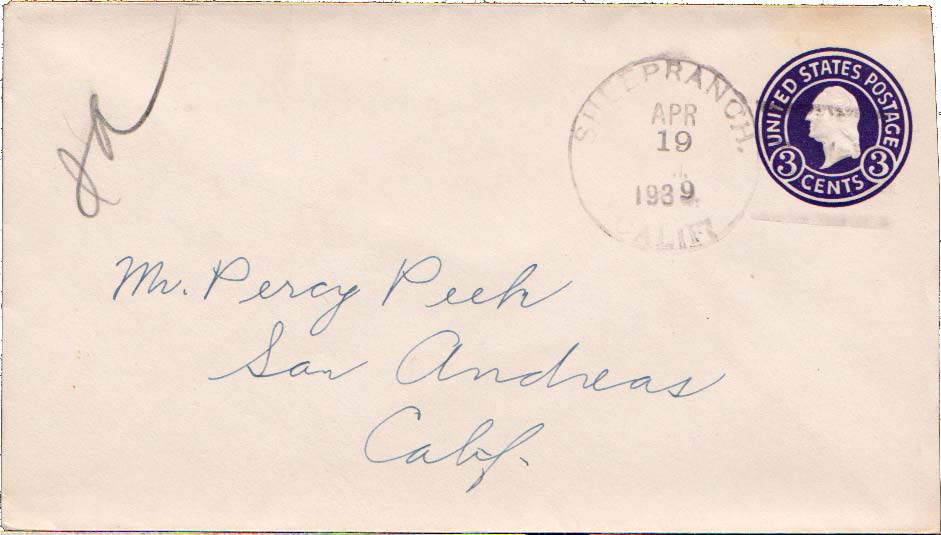 SHEEPRANCH,
APR
19
1939
CALIF.
UNITED STATES POSTAGE
3 CENTS 3
Mr. Percy Peek
San Andreas
Calif.